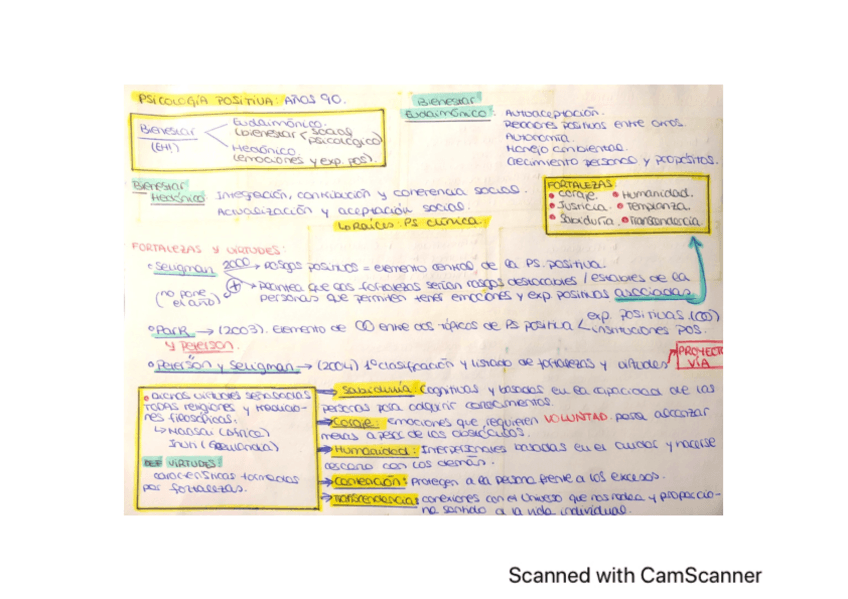 PSICOLOGÍA POSITIVA: AÑOS 90.
Bienestar (EH!)
Eudaimónico.
(bienestar < social psicológico)
Hedónico.
(emociones y exp. pos)
Bienestar Eudaimónico:
Autoaceptación.
Relaciones positivas entre otros.
Autonomía.
Manejo ambiental.
Crecimiento personal y propósitos.
Bienestar Hedónico
Integración, contribución y coherencia social.
Actualización y aceptación social.
↳ Raíces: PS clínica.
FORTALEZAS:
• Coraje. • Humanidad.
• Justicia. • Templanza.
• Sabiduría. • Trascendencia
FORTALEZAS Y VIRTUDES:
• Seligman 2000 → rasgos positivos = elemento central de la PS. positiva.
(no pone el año)
+ → Plantea que las fortalezas serían rasgos / estables de la
personas que permiten tener emociones y exp positivas asociadas.
• Park y Peterson. → (2003). Elemento de entre dos tópicos de PS positiva < exp. positivas. instituciones pos.
• Peterson y Seligman → (2004) 1º clasificación y listado de fortalezas y virtudes
PROYECTO VÍA
TODAS religiones y tradiciones filosóficas:
↳ Maasai (África)
Inuit (Groenlandia)
DEF VIRTUDES:
características formadas
por fortalezas.
→ Sabiduría: Cognitivas y basadas en la capacidad de las
personas para adquirir conocimientos.
→ Coraje: emociones que requieren VOLUNTAD para alcanzar
metas a pesar de los obstáculos.
→ Humanidad: Interpersonales basadas en el cuidar y hacerse
cercano con los demás.
→ Contención: Protegen a la persona frente a los excesos.
→ Transcendencia: conexiones con el Universo que nos rodea y proporcio-
na sentido a la vida individual.
Scanned with CamScanner